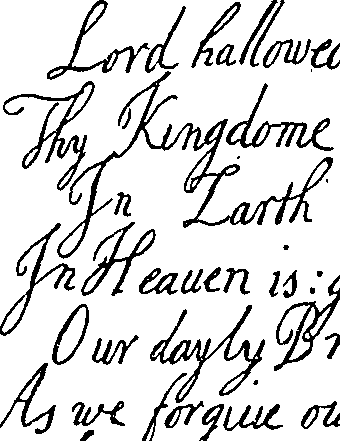 Lord hallowed
Thy Kingdome
In Earth
In Heauen is: g
Our dayly Br
As we forgiue ou